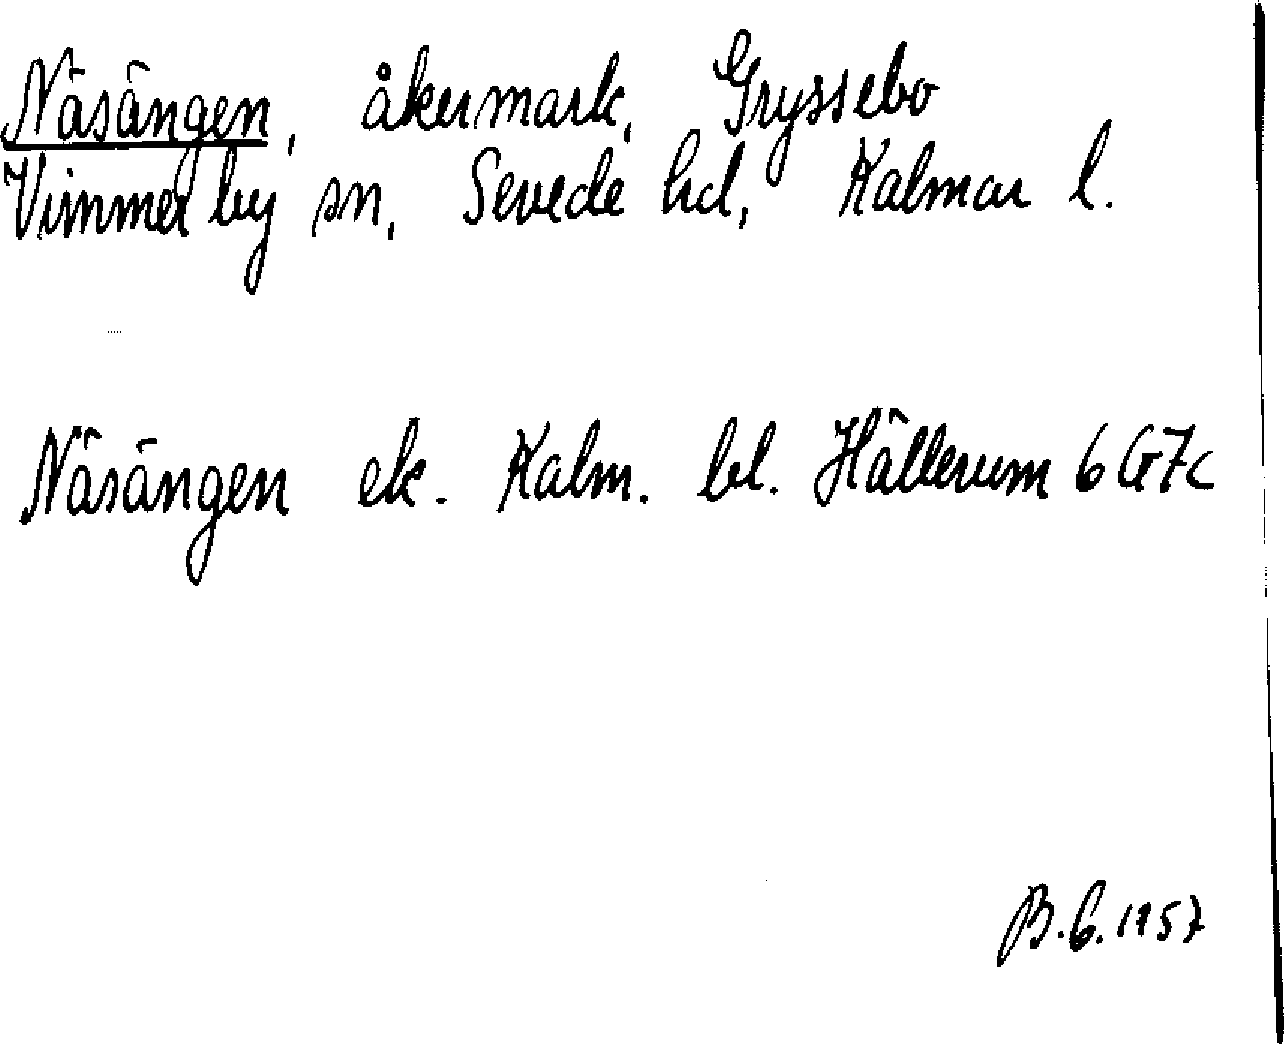 Näsängen, åkermark, Gryssebo
Vimmerby sn, Sevede hd, Kalmar l.
Näsängen ek. Kalm. bl. Hällerum 6 G7c
B.G. 1957